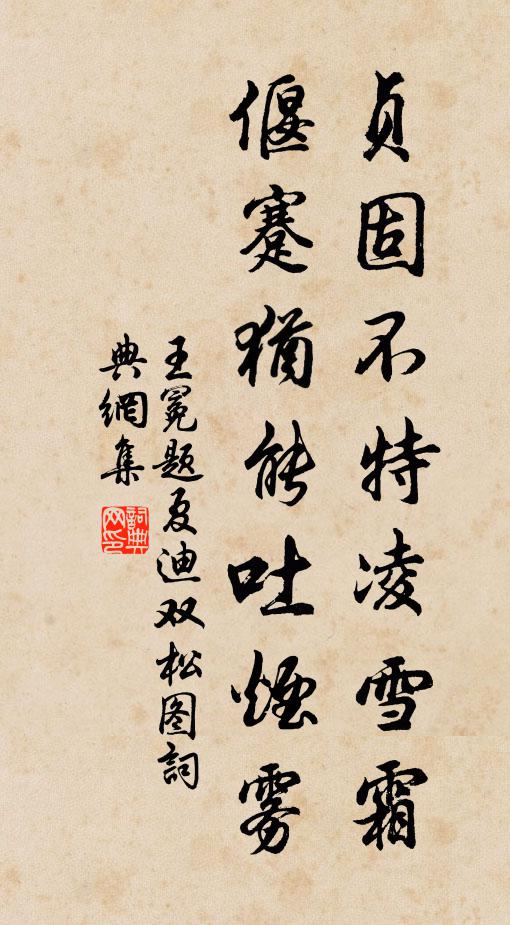 贞固不特凌雪霜
偃蹇猶能吐煙雾
王冕题夏迪双松图詞
典網集
詞典
网印